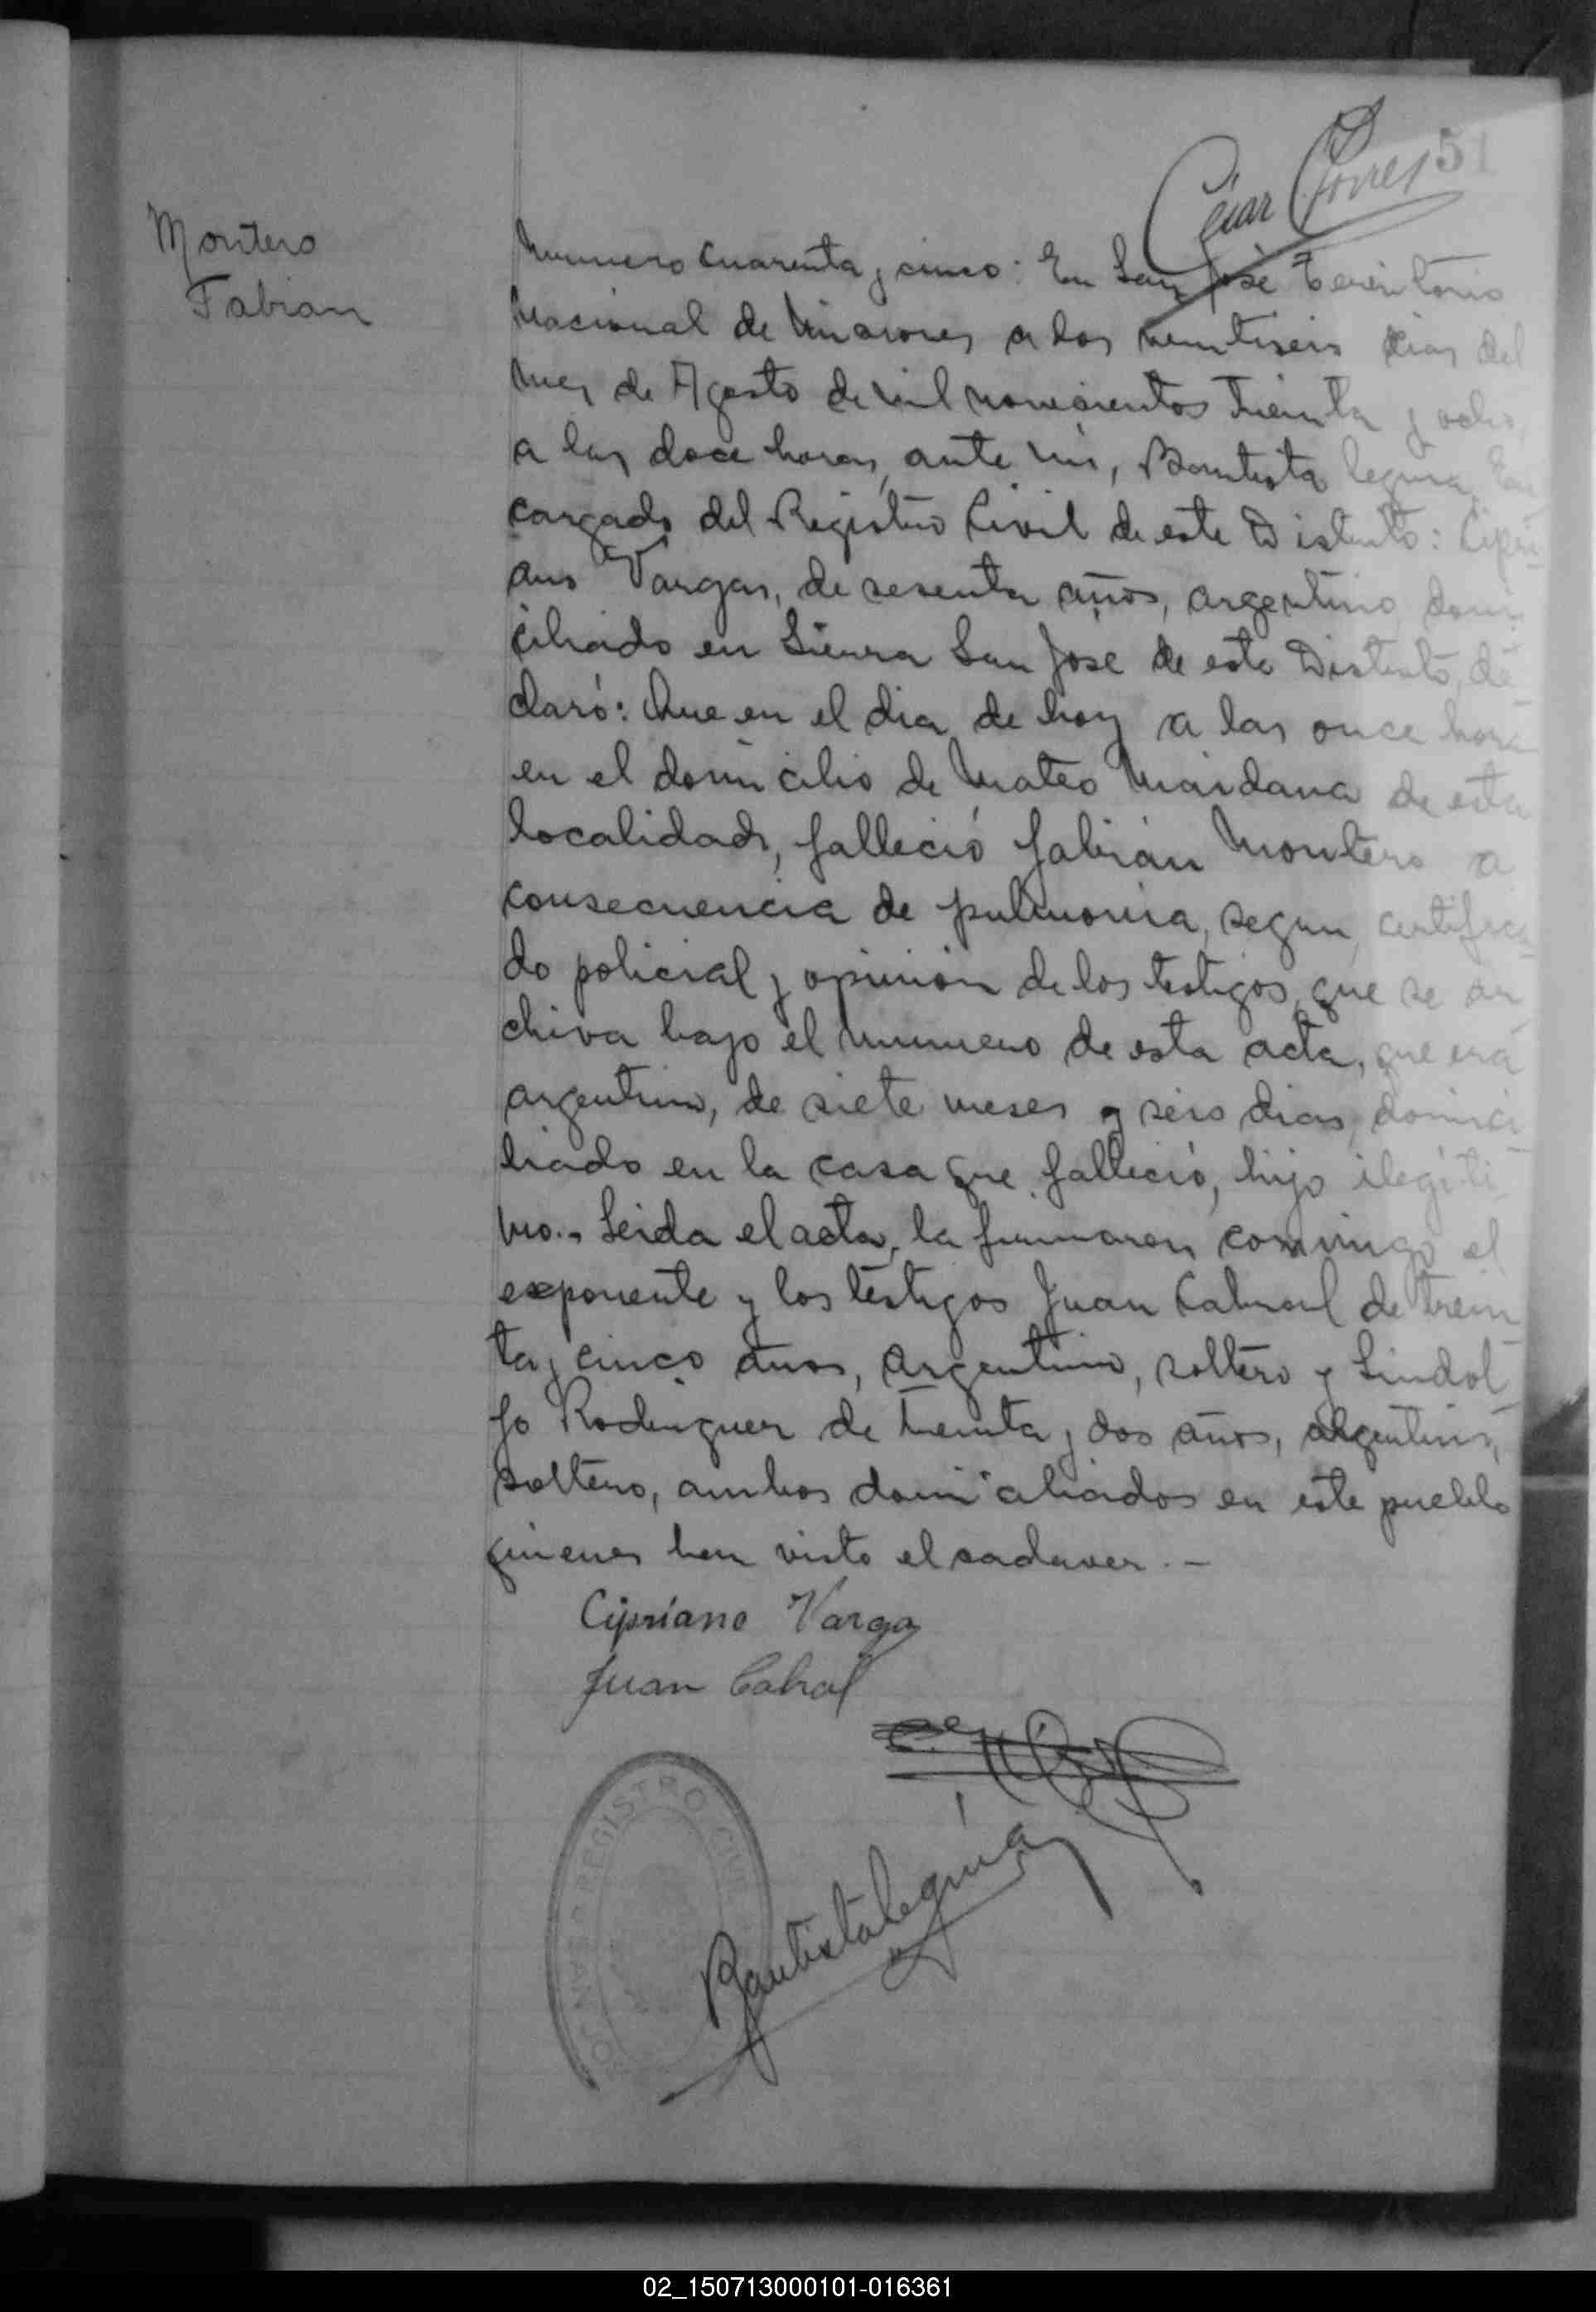 César Torres 51
Montero
Fabian
Numero cuarenta y cinco: En San José Territorio
Nacional de Misiones a los veintiseis dias del
mes de Agosto de mil novecientos treinta y ocho,
a las doce horas, ante mi, Bautista Leguia, En
cargado del Registro Civil de este Distrito: Cipri
ano Vargas, de sesenta años, argentino, domi
ciliado en Sierra San José de este Distrito, de
claró: Que en el dia de hoy a las once hora
en el domicilio de Mateo Maidana de esta
localidad, falleció fabián Montero a
consecuencia de pulmonia, segun certifica
do policial y opinión de los testigos, que se ar
chiva bajo el numero de esta acta, que era
argentino, de siete meses y seis dias, domici
liado en la casa que falleció, hijo ilegiti
mo.- Leida el acta, la firmaron conmigo el
exponente y los testigos Juan Cabral de trein
ta y cinco años, argentino, soltero y Lindol
fo Rodriguez de treinta y dos años, argentino,
soltero, ambos domiciliados en este pueblo
quienes han visto el cadaver.-
Cipriano Varga
Juan Cabral
REGISTRO CIVIL
SAN JO
Bautista Leguia
02_150713000101-016361